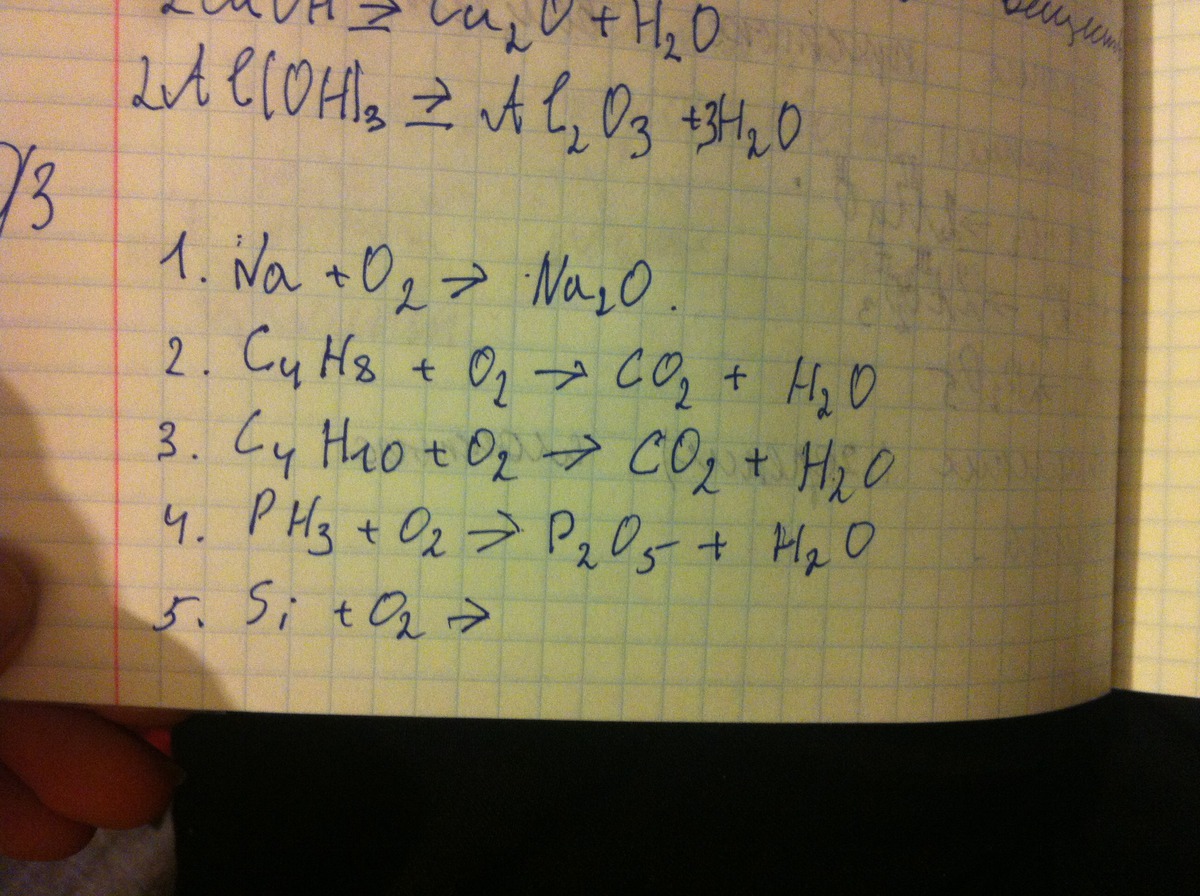 2CuOH → Cu₂O + H₂O
2Al(OH)₃ → Al₂O₃ + 3H₂O
Д/З
1. Na + O₂ → Na₂O.
2. C₄H₈ + O₂ → CO₂ + H₂O
3. C₄H₁₀ + O₂ → CO₂ + H₂O
4. PH₃ + O₂ → P₂O₅ + H₂O
5. Si + O₂ →